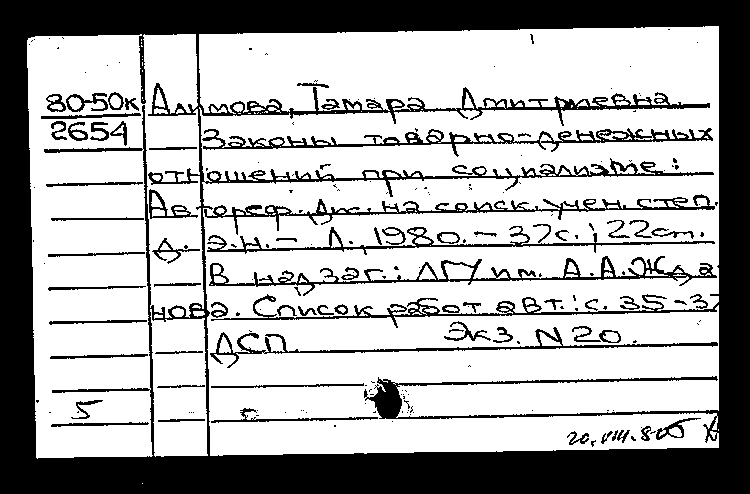 80-50к Алимова, Тамара Дмитриевна.
2654 Законы товарно-денежных
отношений при социализме:
Автореф. дис. на соиск. учен. степ.
д. э.н. - Л., 1980. - 37с.; 22см.
В надзаг.: ЛГУ им. А.А.Жда
нова. Список работ авт.: с. 35-37
ДСП. Экз. N 20.
5
20.VIII.80